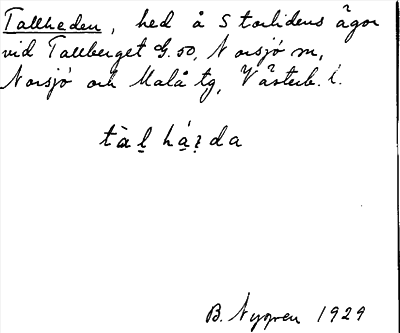 Tallheden, hed å Storlidens ägor
vid Tallberget G. 50, Norsjö sn,
Norsjö och Malå tg, Västerb. l.
B. Nygren 1929